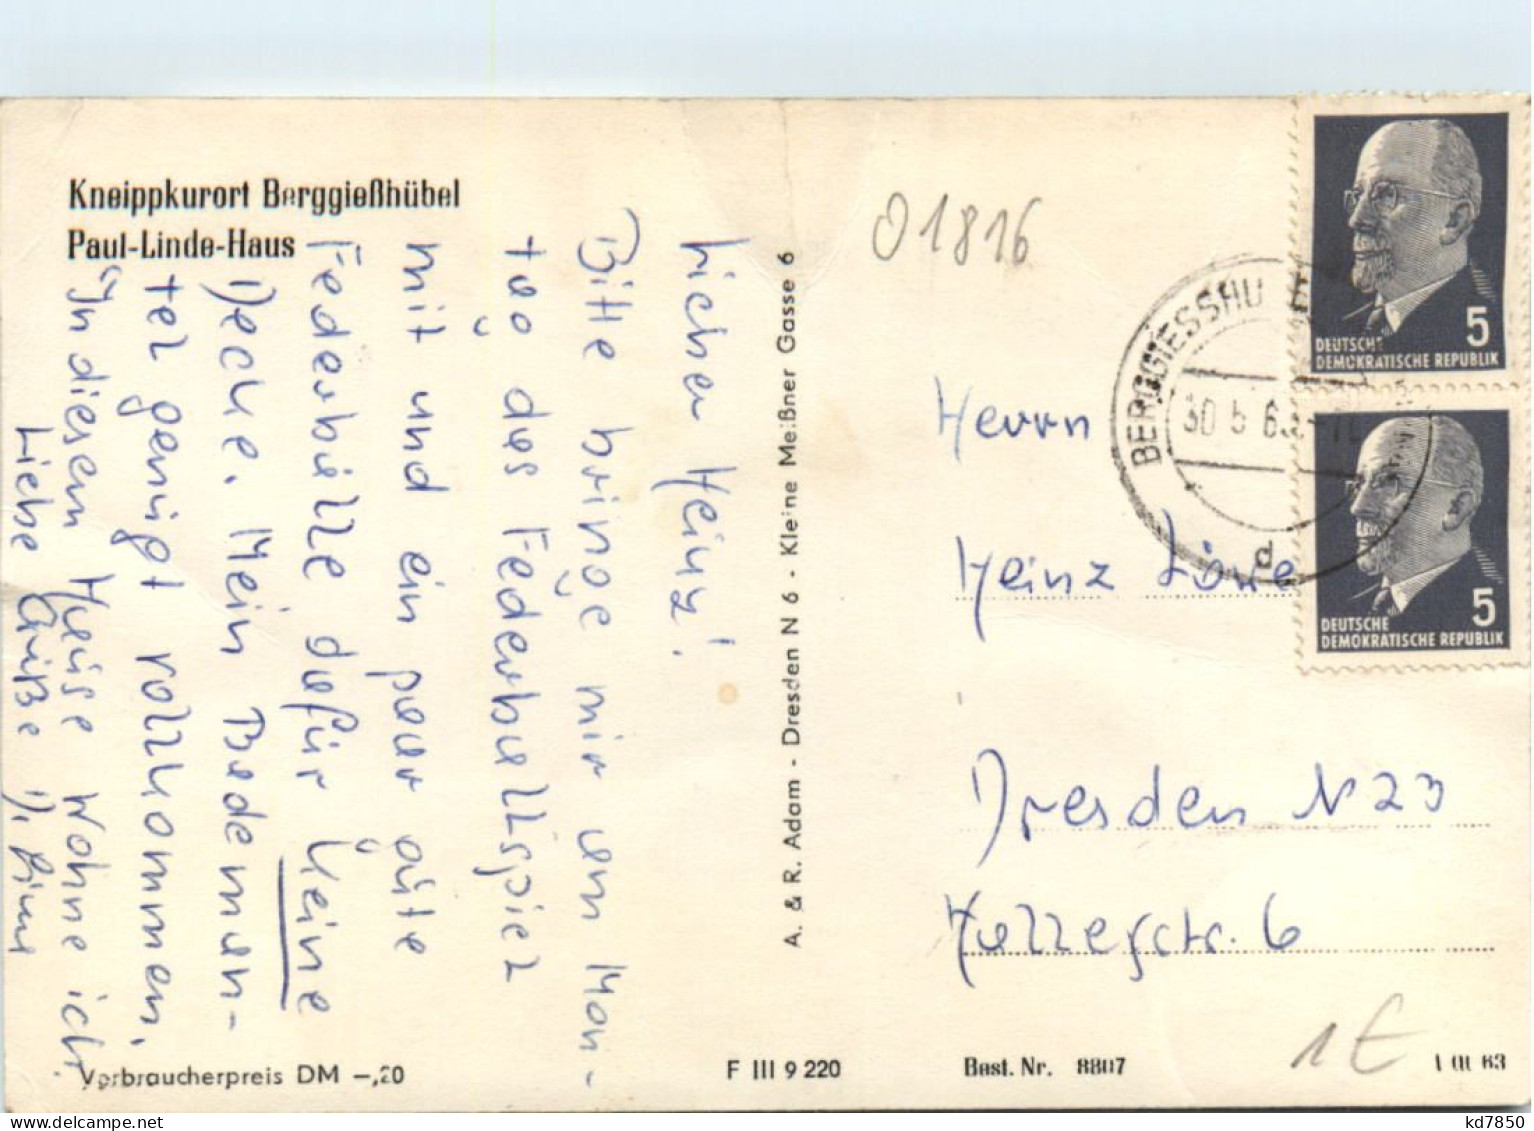 Kneippkurort Berggießhübel
Paul-Linde-Haus
Lieber Heinz!
Bitte bringe mir am Mon-
tag das Federballspiel
mit und ein paar gute
Federbälle dafür keine
Decke. Mein Bademan-
tel genügt vollkommen.
"In diesem Hause wohne ich.
Liebe Grüße D.
Verbraucherpreis DM –,20
A. & R. Adam - Dresden N 6 - Kleine Meißner Gasse 6
F III 9 220
01816
BERGGIESSHÜ
30 5 63
d
5
DEUTSCHE
DEMOKRATISCHE REPUBLIK
5
DEUTSCHE
DEMOKRATISCHE REPUBLIK
Herrn
Heinz
Dresden N 23
6
Best. Nr. 8807
1 €
63
kd7850